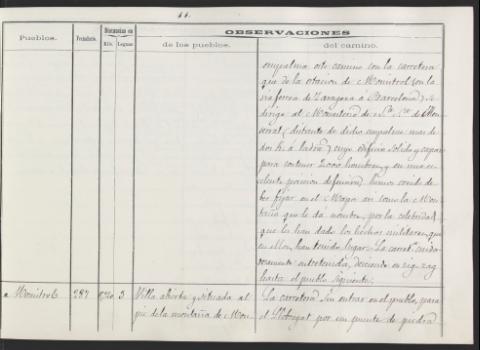 44.
Distancias en
OBSERVACIONES
Pueblos. Vecindario. Kils. Leguas de los pueblos. del camino.
empalma este camino con la carretera
que de la estacion de Monistrol con la
via ferrea de Zaragoza á Barcelona, se
dirige al Monasterio de Ntra. Sra. de Mon
serrat (distante de dicho empalme mas de
dos k. á la dra. y cuyo edificio sólido y capaz
para contener 2000 hombres, y en una es-
celente posicion defensiva) hemos creido de
ber fijar en el Mapa asi como la Mon
taña que le da nombre, por la celebridad
que les han dado los hechos militares que
en ellos han tenido lugar. La carreta. cuida
dosamente entretenida, desciende en zig-zag
hasta el pueblo siguiente:
a Monistrol 287 3 Villa abierta y situada al
pie de la montaña de Mon-
La carretera sin entrar en el pueblo, pasa
el Llobregat por un puente de piedra